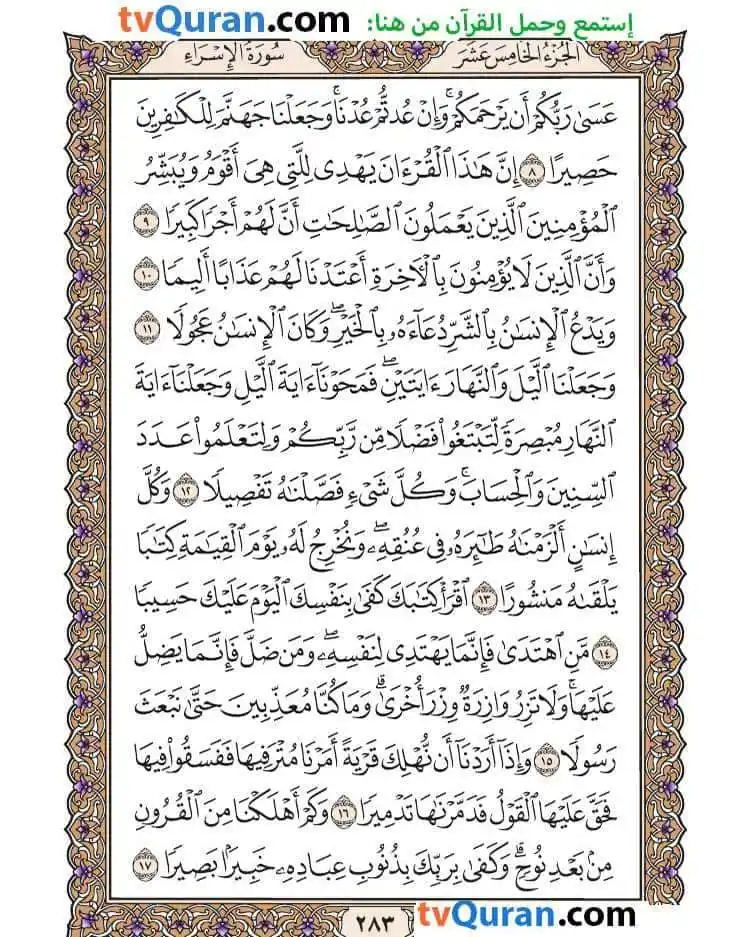 إستمع وحمل القرآن من هنا: tvQuran.com
الجُزْءُ الخَامِسَ عَشَرَ
سُورَةُ الإِسْرَاءِ
عَسَىٰ رَبُّكُمْ أَن يَرْحَمَكُمْۚ وَإِنْ عُدتُّمْ عُدْنَاۚ وَجَعَلْنَا جَهَنَّمَ لِلْكَٰفِرِينَ
حَصِيرًا ٨ إِنَّ هَٰذَا ٱلْقُرْءَانَ يَهْدِى لِلَّتِى هِىَ أَقْوَمُ وَيُبَشِّرُ
ٱلْمُؤْمِنِينَ ٱلَّذِينَ يَعْمَلُونَ ٱلصَّٰلِحَٰتِ أَنَّ لَهُمْ أَجْرًا كَبِيرًا ٩
وَأَنَّ ٱلَّذِينَ لَا يُؤْمِنُونَ بِٱلْءَاخِرَةِ أَعْتَدْنَا لَهُمْ عَذَابًا أَلِيمًا ١٠
وَيَدْعُ ٱلْإِنسَٰنُ بِٱلشَّرِّ دُعَآءَهُۥ بِٱلْخَيْرِۖ وَكَانَ ٱلْإِنسَٰنُ عَجُولًا ١١
وَجَعَلْنَا ٱلَّيْلَ وَٱلنَّهَارَ ءَايَتَيْنِۖ فَمَحَوْنَآ ءَايَةَ ٱلَّيْلِ وَجَعَلْنَآ ءَايَةَ
ٱلنَّهَارِ مُبْصِرَةً لِّتَبْتَغُوا۟ فَضْلًا مِّن رَّبِّكُمْ وَلِتَعْلَمُوا۟ عَدَدَ
ٱلسِّنِينَ وَٱلْحِسَابَۚ وَكُلَّ شَىْءٍ فَصَّلْنَٰهُ تَفْصِيلًا ١٢ وَكُلَّ
إِنسَٰنٍ أَلْزَمْنَٰهُ طَٰٓئِرَهُۥ فِى عُنُقِهِۦۖ وَنُخْرِجُ لَهُۥ يَوْمَ ٱلْقِيَٰمَةِ كِتَٰبًا
يَلْقَىٰهُ مَنشُورًا ١٣ ٱقْرَأْ كِتَٰبَكَ كَفَىٰ بِنَفْسِكَ ٱلْيَوْمَ عَلَيْكَ حَسِيبًا
١٤ مَّنِ ٱهْتَدَىٰ فَإِنَّمَا يَهْتَدِى لِنَفْسِهِۦۖ وَمَن ضَلَّ فَإِنَّمَا يَضِلُّ
عَلَيْهَاۚ وَلَا تَزِرُ وَازِرَةٌ وِزْرَ أُخْرَىٰۗ وَمَا كُنَّا مُعَذِّبِينَ حَتَّىٰ نَبْعَثَ
رَسُولًا ١٥ وَإِذَآ أَرَدْنَآ أَن نُّهْلِكَ قَرْيَةً أَمَرْنَا مُتْرَفِيهَا فَفَسَقُوا۟ فِيهَا
فَحَقَّ عَلَيْهَا ٱلْقَوْلُ فَدَمَّرْنَٰهَا تَدْمِيرًا ١٦ وَكَمْ أَهْلَكْنَا مِنَ ٱلْقُرُونِ
مِنۢ بَعْدِ نُوحٍۗ وَكَفَىٰ بِرَبِّكَ بِذُنُوبِ عِبَادِهِۦ خَبِيرًۢا بَصِيرًا ١٧
٢٨٣
tvQuran.com